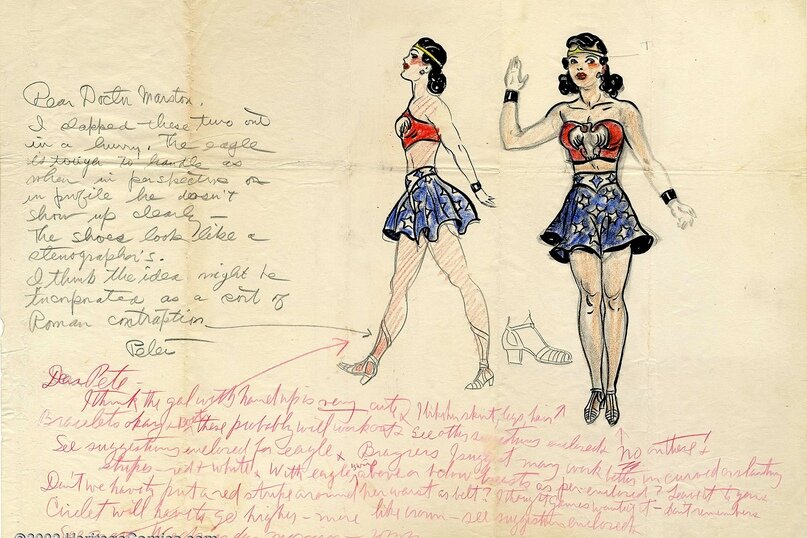 Dear Doctor Marston,
I slapped these two out
in a hurry. The eagle
is tough to handle as
when in perspective or
in profile he doesn't
show up clearly —
The shoes look like a
stenographer's.
I think the idea might be
incorporated as a sort of
Roman contraption.
Peter
Dear Pete —
I think the gal with hand up is very cute. I like her skirt, legs, hair
Bracelets okay + boots. These probably will work out. See other suggestions enclosed. No on these!
See suggestions enclosed for eagle + Brassiere I suggest may work better in curved or slanting
stripes — red + white. With eagle's wings above or below breasts as per enclosed? Leave it to you.
Don't we have to put a red stripe around her waist as belt? I thought Gaines wanted it — don't remember
Circlet will have to go higher — more like crown — see suggestion enclosed
©2002 HeritageComics.com